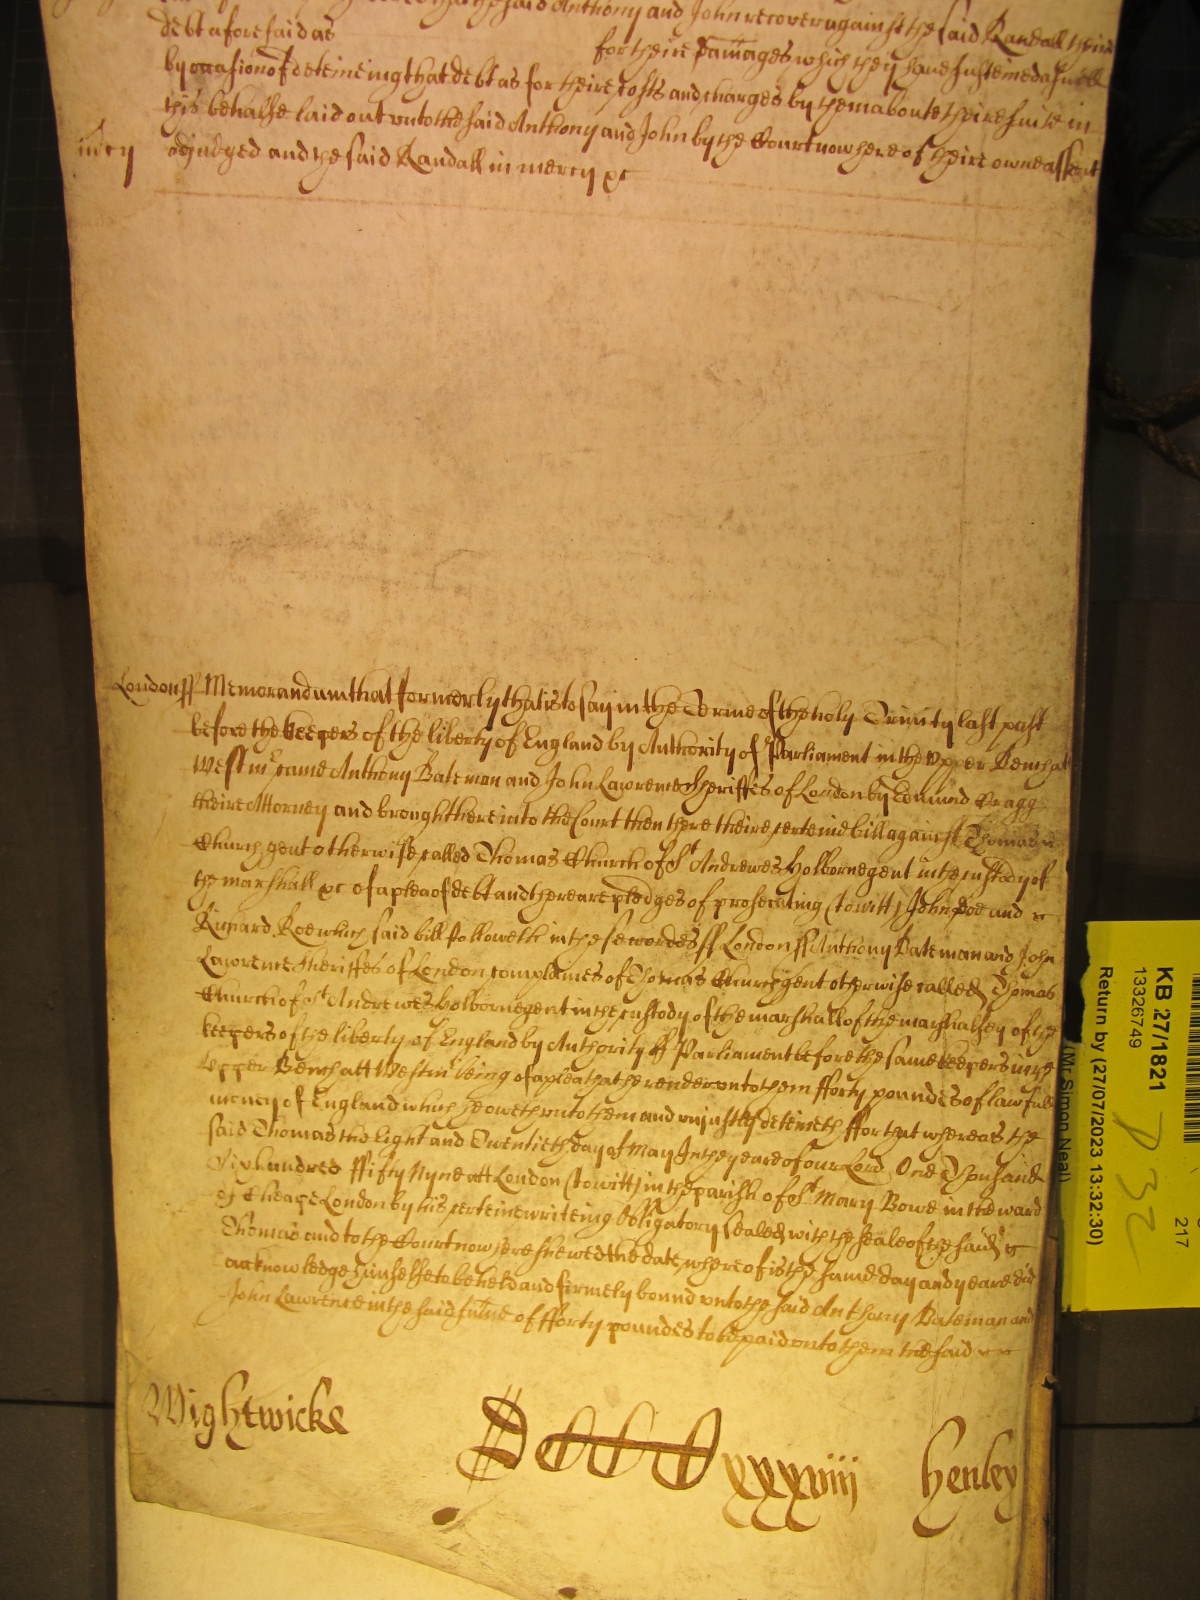 that the said Anthony and John recover against the said Randall theire
debt aforesaid as for theire damages which they have susteined aswell
by occasion of deteineing that debt as for theire costs and charges by them aboute theire suite in
this behalfe laid out unto the said Anthony and John by the Court now here of theire owne assent
mercy adjudged and the said Randall in mercy &c
London ss Memorandum that formerly that is to say in the Terme of the holy Trinity last past
before the keepers of the liberty of England by Authority of Parliament in the Upper Bench at
Westmr came Anthony Bateman and John Lawrence Sheriffes of London by Edmund Bragg
theire Attorney and brought here into the Court then there theire certeine bill against Thomas
Church gent otherwise called Thomas Church of St Andrewes Holborne gent in the custody of
the marshall &c of a plea of debt and there are pledges of prosecuting (towitt) John Doe and
Richard Roe which said bill followeth in these wordes ss London ss Anthony Bateman and John
Lawrence Sheriffes of London complaines of Thomas Church gent otherwise called Thomas
Church of St Andrewes holborne gent in the custody of the marshall of the marshalsey of the
keepers of the liberty of England by Authority of Parliament before the same keepers in the
Upper Bench att Westmr being of a plea that he render unto them fforty poundes of lawfull
money of England which he oweth unto them and unjustly deteineth ffor that whereas the
said Thomas the Eight and Twentieth day of May In the yeare of our Lord One Thousand
Six hundred ffifty Nyne att London (towitt) in the parish of St Mary Bowe in the ward
of Cheape London by his certeine writeing Obligatory sealed with the seale of the said
Thomas and to the Court now here shewed the date whereof is the same day and yeare did
acknowledge himselfe to be held and firmely bound unto the said Anthony Bateman and
John Lawrence in the said summe of fforty poundes to be paid unto them the said
Wightwicke xxxviiij Henley
KB 27/1821
13326749
Return by (27/07/2023 13:32:30)
(Mr Simon Neal)
217
P 32